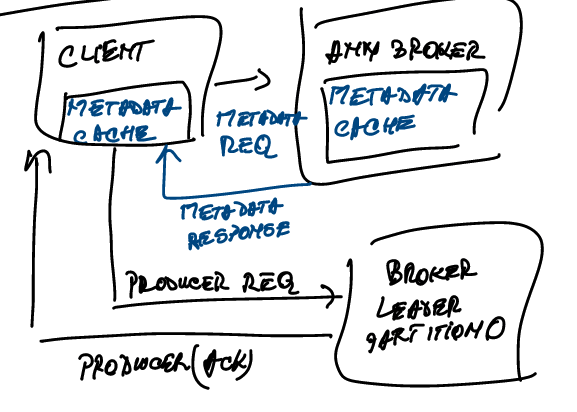 CLIENT
METADATA
CACHE
METADATA
REQ
ANY BROKER
METADATA
CACHE
METADATA
RESPONSE
PRODUCER REQ
BROKER
LEADER
PARTITION 0
PRODUCER (ACK)